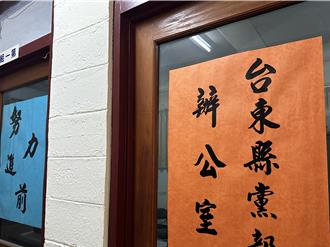 組一第
努力
進前
台東縣黨部
辦公室